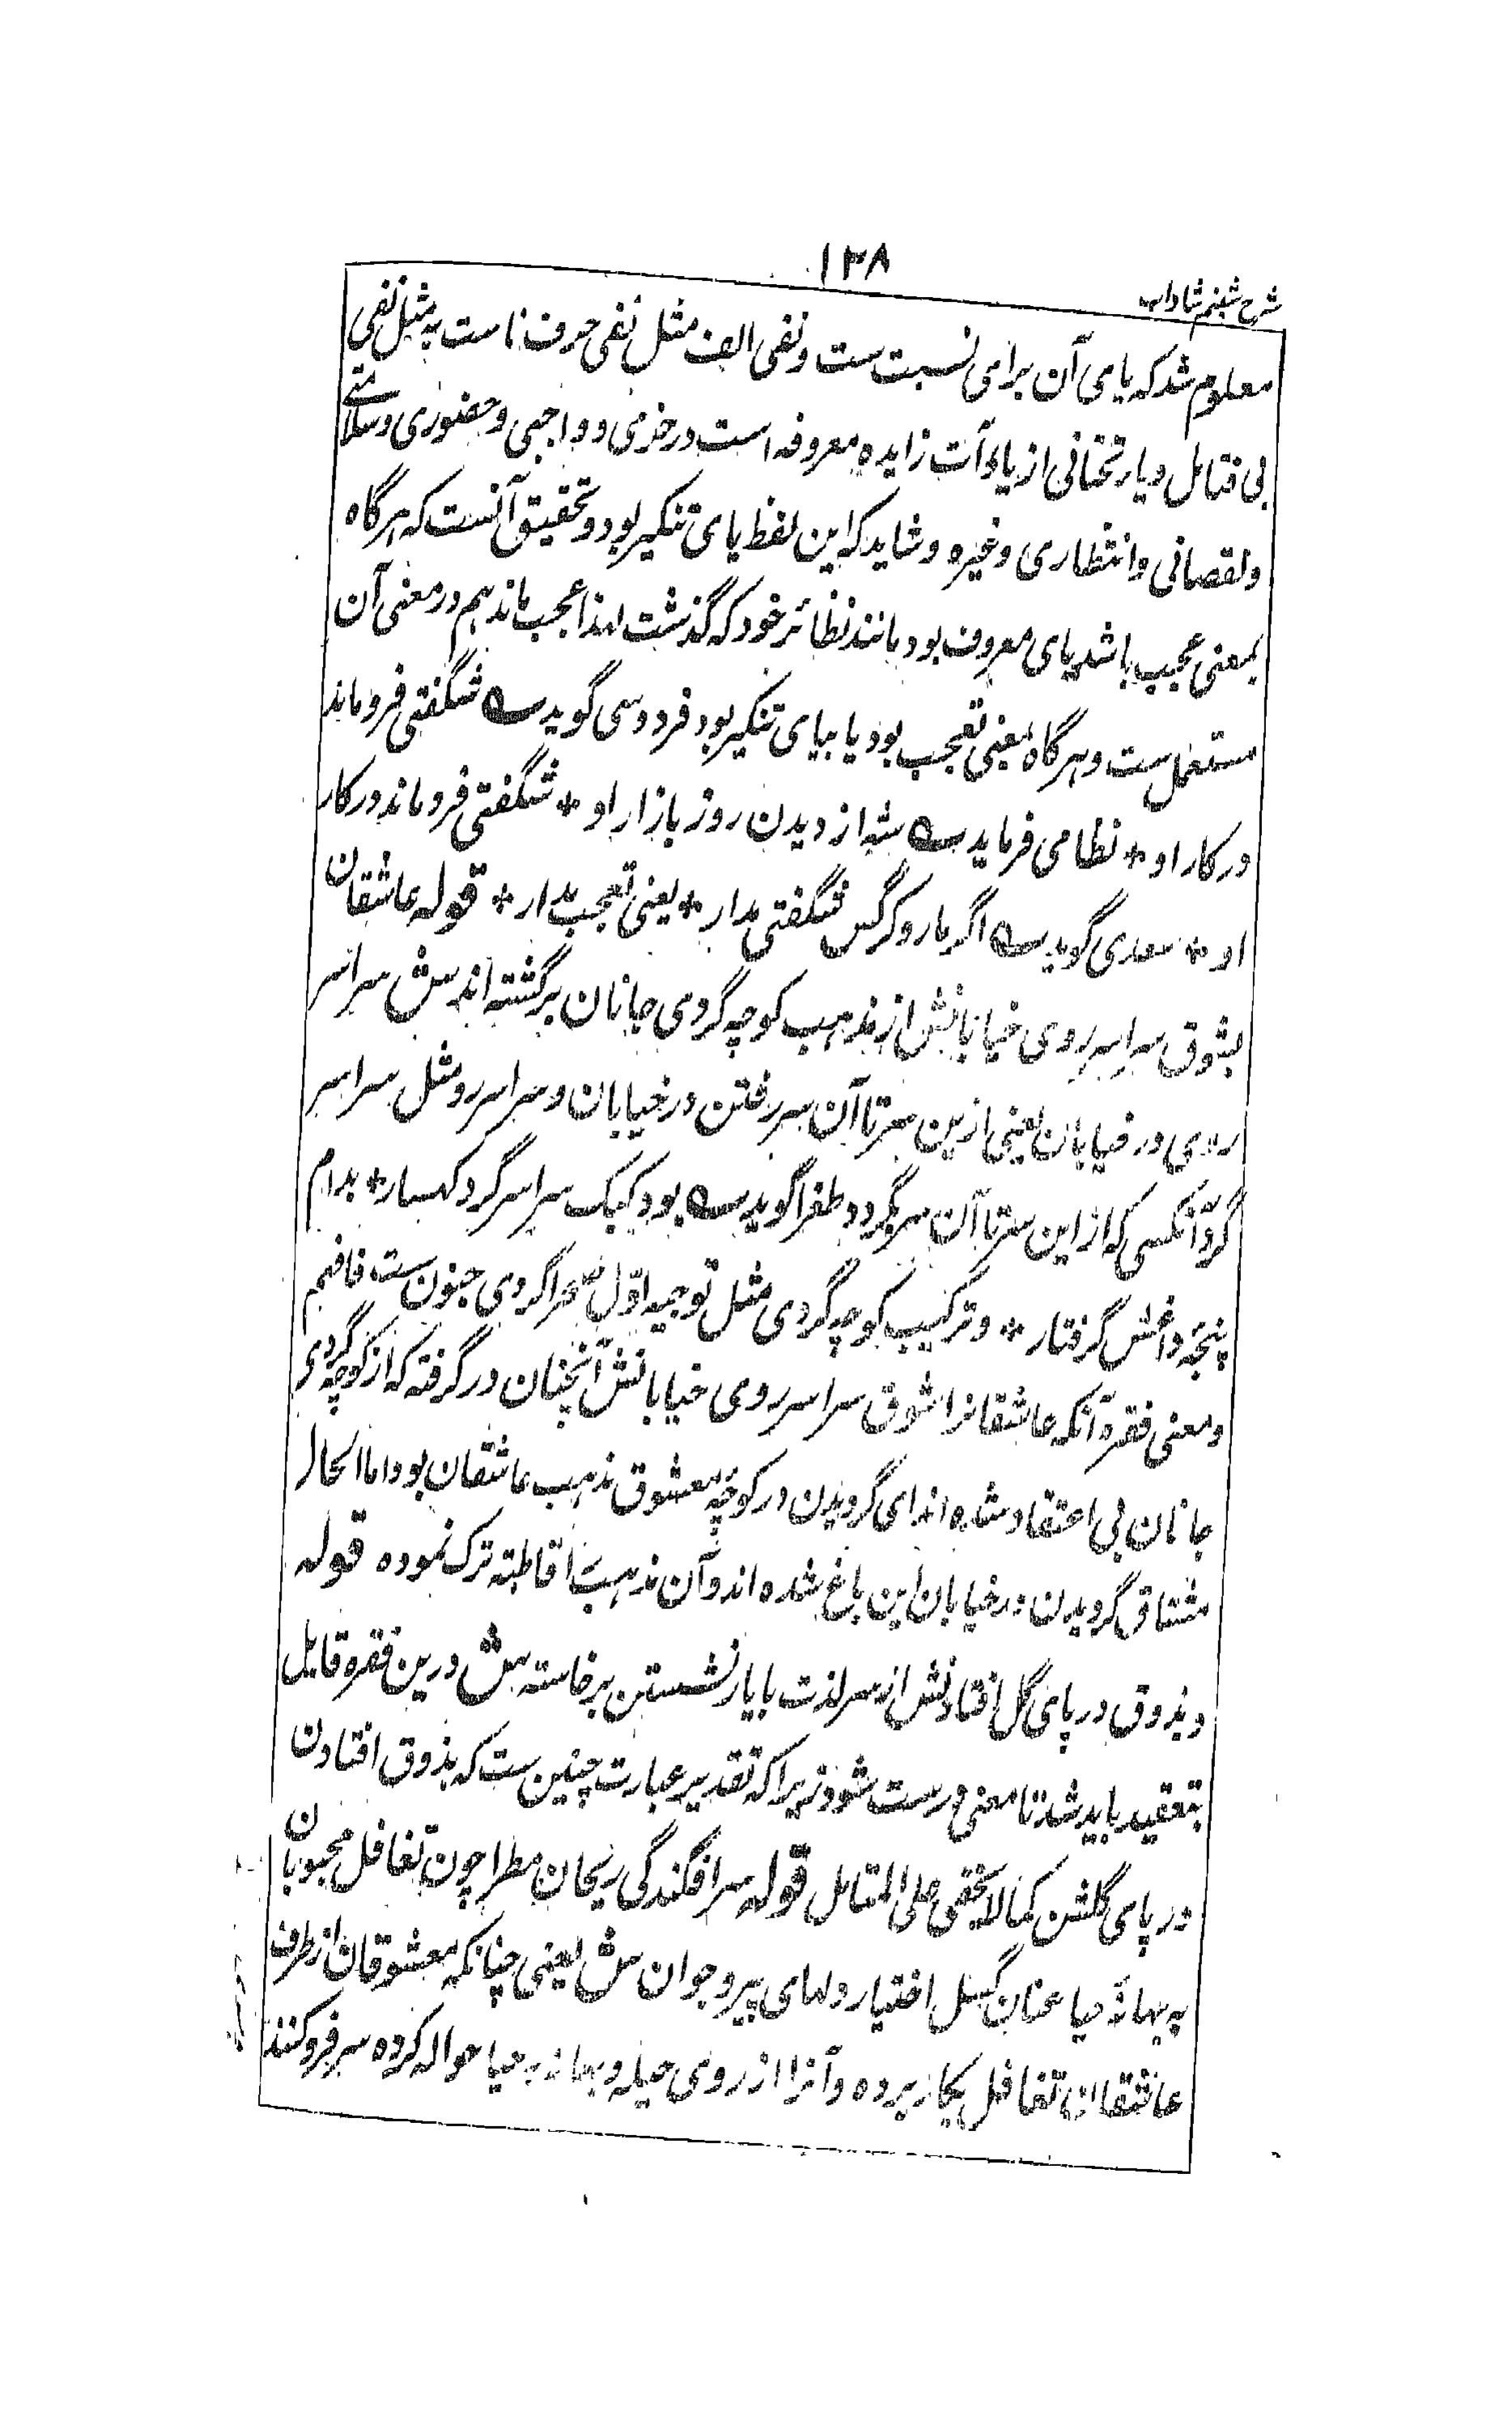 ۱۳۸
شرح شبنم شاداب
معلوم شد که یای آن برای نسبت ست و نفی الف مثل نفی حرف نا ست نه مثل نفی
بی فتامل و یار تحتانی از یاءآت زایده معروفه است در خرمی و واجبی و حضوری و سلامتی
و نقصانی و انتظاری و غیره و شاید که این لفظ یای تنکیر بود و تحقیق آنست که هر گاه
بمعنی عجیب باشد یای معروف بود مانند نظائر خود که گذشت لهذا عجب ماندهم در معنی آن
مستعمل ست و هر گاه بمعنی تعجب بود یا بیای تنکیر بود فردوسی گوید ؎ شگفتی فروماند
در کار او * نظامی فرماید ؎ شه از دیدن روز بازار او * شگفتی فروماند در کار
او * سعدی گوید ؎ اگر مار و کرگس شگفتی مدار * یعنی تعجب مدار * قوله عاشقان
بشوق سراسر روی خیابانش از مذهب کوچه گردی جانان برگشته اند ش سراسر
روی در خیابان یعنی ازین سر تا آن سر رفتن در خیابان و سراسر رو مثل سراسر
گرد آنکسی که از این سر تا آن سر بگردد طغرا گوید ؎ بود کبک سراسر گرد کهسار * بدام
پنجه داغش گرفتار * و ترکیب کوچه گردی مثل توجیه اول صحرا گردی جنون ست فافهم
و معنی فقره آنکه عاشقانرا شوق سراسر روی خیابانش آنچنان در گرفته که از کوچه گردی
جانان بی اعتقاد شده اند ای گردیدن در کوچه معشوق مذهب عاشقان بود اما الحال
مشتاق گردیدن در خیابان این باغ شده اند و آن مذهب را قاطبة ترک نموده قوله
و بذوق در پای گل افتادنش از سر لذت با یار نشستن برخاسته ش درین فقره قایل
بتعقید باید شد تا معنی درست شود زیرا که تقدیر عبارت چنین ست که بذوق افتادن
در پای گلشن کما لا یخفی علی المتامل قوله سر افگندگی ریحان مطرا چون تغافل محبوبان
به بهانه حیا عنان گسل اختیار دلهای پیر و جوان ش یعنی چنانکه معشوقان از طرف
عاشقان تغافل بکار برده و آنرا از روی حیله و بهانه بحیا حواله کرده سر فرو کنند